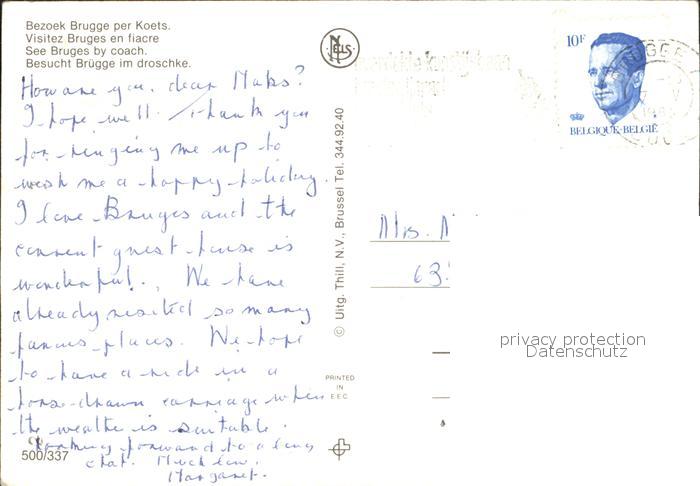 Bezoek Brugge per Koets.
Visitez Bruges en fiacre
See Bruges by coach.
Besucht Brügge im droschke.
How are you, dear Mabs?
I hope well. Thank you
for ringing me up to
wish me a happy holiday.
I love Bruges and the
convent guest-house is
wonderful!. We have
already visited so many
famous places. We hope
to have a ride in a
horse-drawn carriage when
the weather is suitable.
Looking forward to a long
chat. Much love,
Margaret.
500/337
NELS
© Uitg. Thill, N.V., Brussel Tel. 344.92.40
PRINTED
IN
E.E.C.
10F
BELGIQUE-BELGIË
BRUGGE
Mrs.
63
privacy protection
Datenschutz